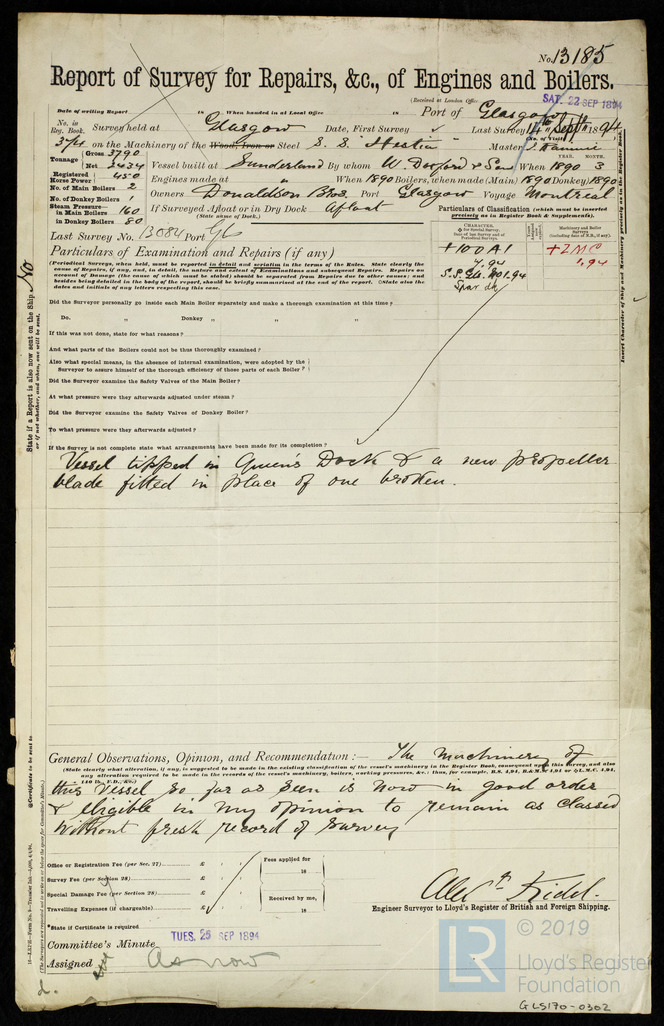 No. 13185
Report of Survey for Repairs, &c., of Engines and Boilers.
(Received at London Office SAT. 22 SEP 1894
Date of writing Report 18 When handed in at Local Office 18 Port of Glasgow
No. in Reg. Book. Survey held at Glasgow Date, First Survey Last Survey 14th Septr 1894
374 on the Machinery of the Wood, Iron or Steel S. S. "Hestia" Master
Tonnage Gross 3790 Net 2434 Vessel built at Sunderland By whom W. Doxford & Sons When 1890 3
YEAR. MONTH.
Registered Horse Power 450 Engines made at " When 1890 Boilers, when made (Main) 1890 (Donkey) 1890
No. of Main Boilers 2
No. of Donkey Boilers 1 Owners Donaldson Bros. Port Glasgow Voyage Montreal
Steam Pressure—
in Main Boilers 160 If Surveyed Afloat or in Dry Dock Afloat
in Donkey Boilers 80 (State name of Dock.)
Last Survey No. 13084 Port Gls
Particulars of Classification (which must be inserted precisely as in Register Book & Supplements).
CHARACTER.
Machinery and Boiler Surveys
(including date of N.B., if any).
+100A1 +LMC
7,94 1,94
S.S. Gls. No1,94
Spar dk
Particulars of Examination and Repairs (if any)
(Periodical Surveys, when held, must be reported in detail and seriatim in the terms of the Rules. State clearly the
cause of Repairs, if any, and, in detail, the nature and extent of Examinations and subsequent Repairs. Repairs on
account of Damage (the cause of which must be stated) should be separated from Repairs due to other causes; and
besides being detailed in the body of the report, should be briefly summarised at the end of the report. (State also the
dates and initials of any letters respecting this case.
Did the Surveyor personally go inside each Main Boiler separately and make a thorough examination at this time?
Do. " Donkey " " "
If this was not done, state for what reasons?
And what parts of the Boilers could not be thus thoroughly examined?
Also what special means, in the absence of internal examination, were adopted by the
Surveyor to assure himself of the thorough efficiency of those parts of each Boiler?
Did the Surveyor examine the Safety Valves of the Main Boiler?
At what pressure were they afterwards adjusted under steam?
Did the Surveyor examine the Safety Valves of Donkey Boiler?
To what pressure were they afterwards adjusted?
If the Survey is not complete state what arrangements have been made for its completion?
Vessel tipped in Queen's Dock & a new propeller
blade fitted in place of one broken.
General Observations, Opinion, and Recommendation:— The Machinery of
(State clearly what alteration, if any, is suggested to be made in the existing classification of the vessel's machinery in the Register Book, consequent upon this survey, and also
any alteration required to be made in the records of the vessel's machinery, boilers, working pressures, &c.; thus, for example, B.S. 4,94, B.&M.S. 4,94 or L.M.C. 4,94,
140 lb., F.D., &c.)
this Vessel so far as seen is now in good order
& eligible in my opinion to remain as classed
without fresh record of Survey
Office or Registration Fee (per Sec. 27) £
Survey Fee (per Section 28) £
Special Damage Fee (per Section 28) £
Travelling Expenses (if chargeable) £
Fees applied for
18
Received by me,
18
Alexr Kidd.
Engineer Surveyor to Lloyd's Register of British and Foreign Shipping.
*State if Certificate is required
Committee's Minute TUES. 25 SEP 1894
Assigned As now
State if a Report is also now sent on the Ship No
or if not whether, and when, one will be sent.
Insert Character of Ship and Machinery precisely as in the Register Book.
© 2019
LR
Lloyd's Register
Foundation
GLS170-0302